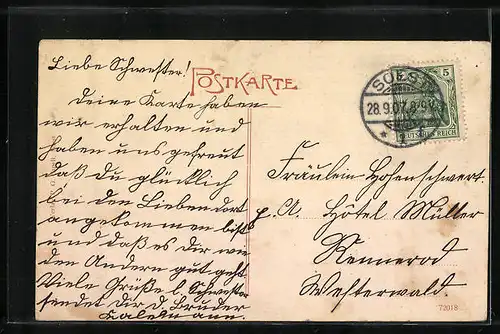 Liebe Schwester!
POSTKARTE
Deine Karte haben
wir erhalten und
haben uns gefreut
daß du glücklich
bei den Lieben dort
angekommen bist
und daß es dir
den Andern gut geht
Viele Grüße l. Schwester
sendet dir d. Bruder
SOEST
28.9.07.
5
DEUTSCHES REICH
Fräulein Hohenschwert.
p. A. Hôtel Müller
Rennerod
Westerwald.
72018